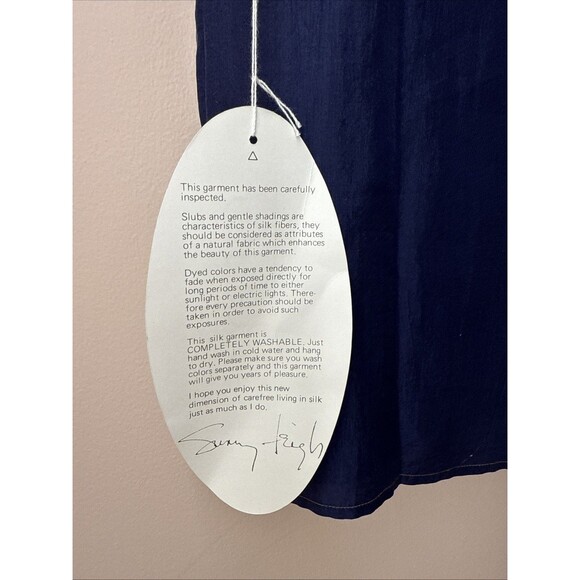 This garment has been carefully
inspected.
Slubs and gentle shadings are
characteristics of silk fibers, they
should be considered as attributes
of a natural fabric which enhances
the beauty of this garment.
Dyed colors have a tendency to
fade when exposed directly for
long periods of time to either
sunlight or electric lights. There-
fore every precaution should be
taken in order to avoid such
exposures.
This silk garment is
COMPLETELY WASHABLE. Just
hand wash in cold water and hang
to dry. Please make sure you wash
colors separately and this garment
will give you years of pleasure.
I hope you enjoy this new
dimension of carefree living in silk
just as much as I do.
Sunny Leigh